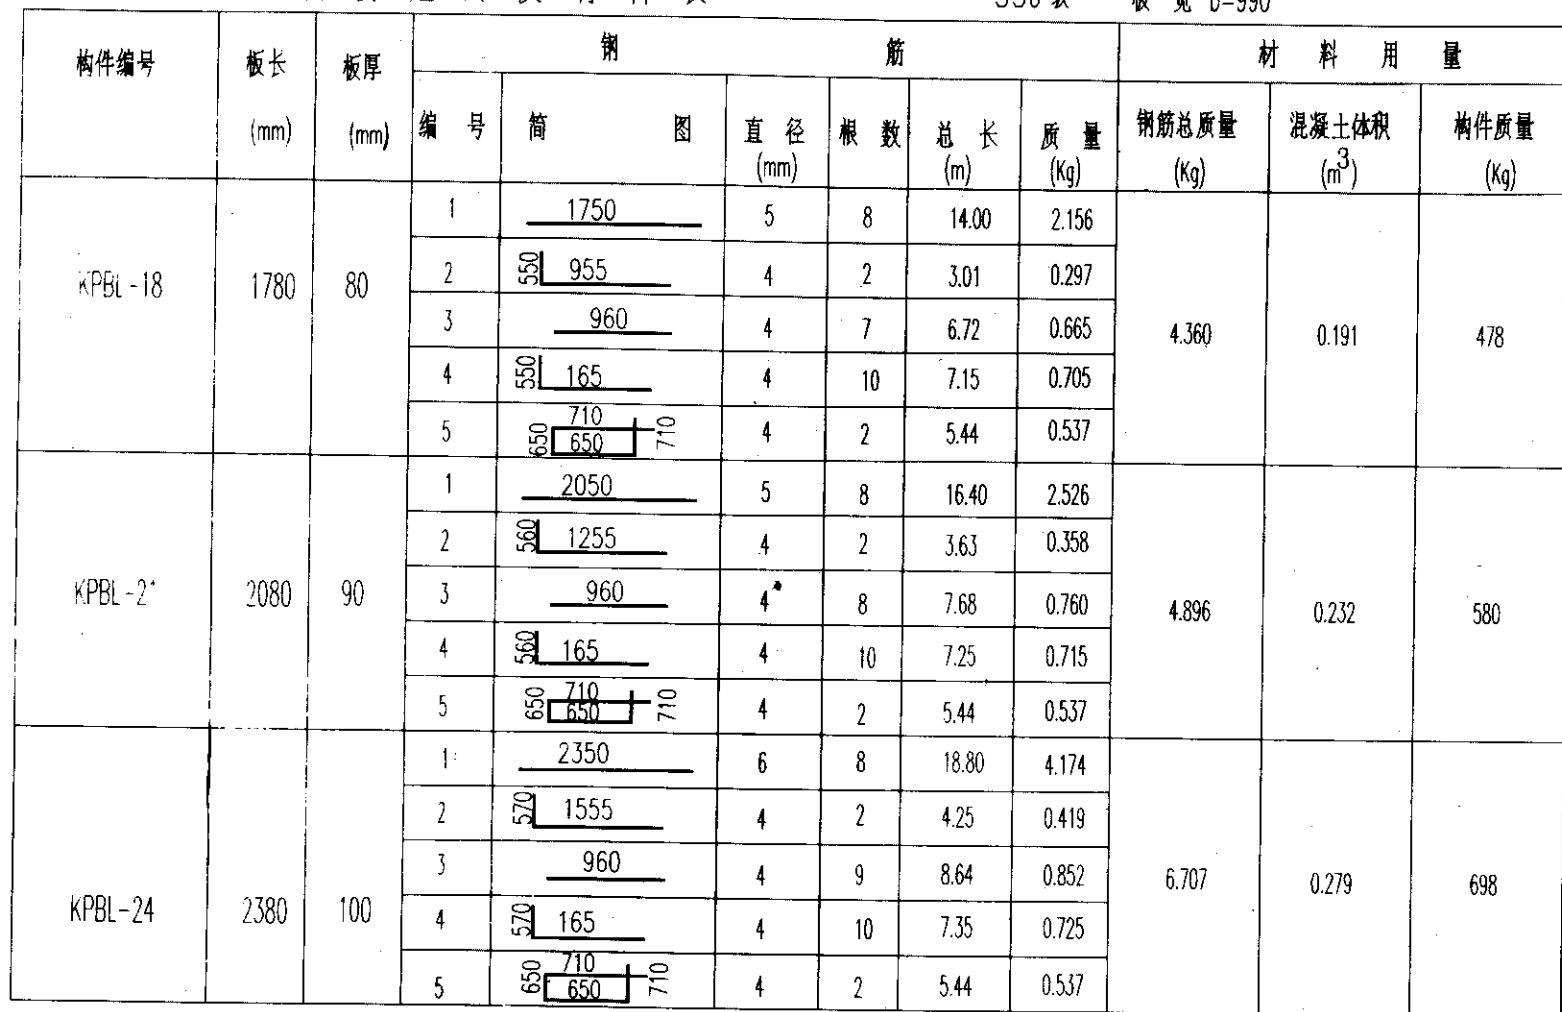 板 宽 b=990
构件编号 板长 (mm) 板厚 (mm) 钢 筋 材 料 用 量
编 号 简 图 直 径 (mm) 根 数 总 长 (m) 质 量 (Kg) 钢筋总质量 (Kg) 混凝土体积 (m3) 构件质量 (Kg)
KPBL-18 1780 80 4.360 0.191 478
1 1750 5 8 14.00 2.156
2 550 955 4 2 3.01 0.297
3 960 4 7 6.72 0.665
4 550 165 4 10 7.15 0.705
5 650 710 650 710 4 2 5.44 0.537
KPBL-2 2080 90 4.896 0.232 580
1 2050 5 8 16.40 2.526
2 560 1255 4 2 3.63 0.358
3 960 4 8 7.68 0.760
4 560 165 4 10 7.25 0.715
5 650 710 650 710 4 2 5.44 0.537
KPBL-24 2380 100 6.707 0.279 698
1 2350 6 8 18.80 4.174
2 570 1555 4 2 4.25 0.419
3 960 4 9 8.64 0.852
4 570 165 4 10 7.35 0.725
5 650 710 650 710 4 2 5.44 0.537